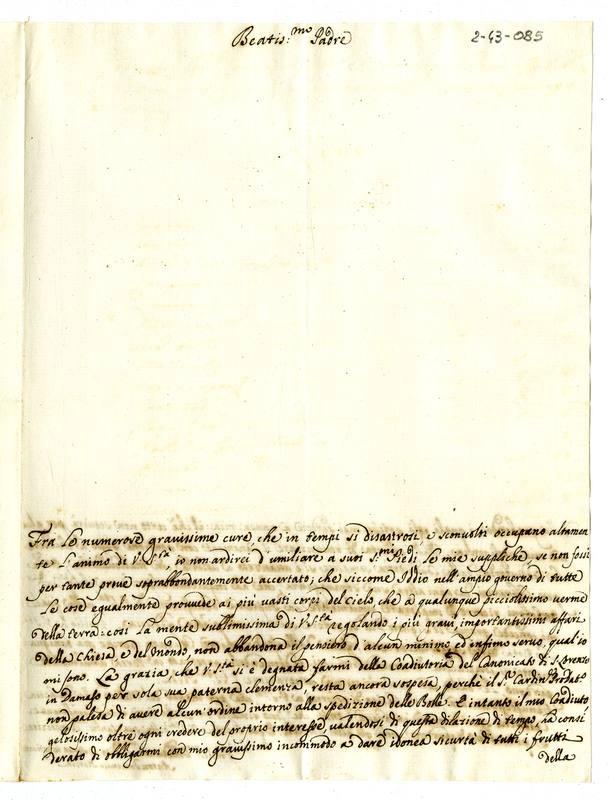 Beatis:mo Padre
2-43-085
Fra le numerose gravissime cure, che in tempi si disastrosi, e sconvolti occupano altamen
te l'animo di V. S.tà, io non ardirei d'umiliare a suoi S.mi Piedi le mie suppliche, se non fossi
per tante prove soprabbondantemente accertato; che siccome Iddio nell'ampio governo di tutte
le cose egualmente provvede ai più vasti corpi del Cielo, che a qualunque picciolissimo verme
della terra: così la mente sublimissima di V. S.tà regolando i più gravi, importantissimi affari
della Chiesa, e del Mondo, non abbandona il pensiero d'alcun minimo, ed infimo servo, qual io
mi sono. La grazia, che V. S.tà si è degnata farmi della Coadiutoria del Canonicato di S. Lorenzo
in Damaso per sola sua paterna clemenza, resta ancora sospesa, perchè il S.r Cardin.
non palesa di avere alcun'ordine intorno alla spedizione delle Bolle. E intanto il mio Coadiuto,
gelosissimo oltre ogni credere del proprio interesse, valendosi di questa dilazione di tempo, ha consi
derato di obbligarmi con mio gravissimo incommodo a dare idonea sicurtà di tutti i frutti
della